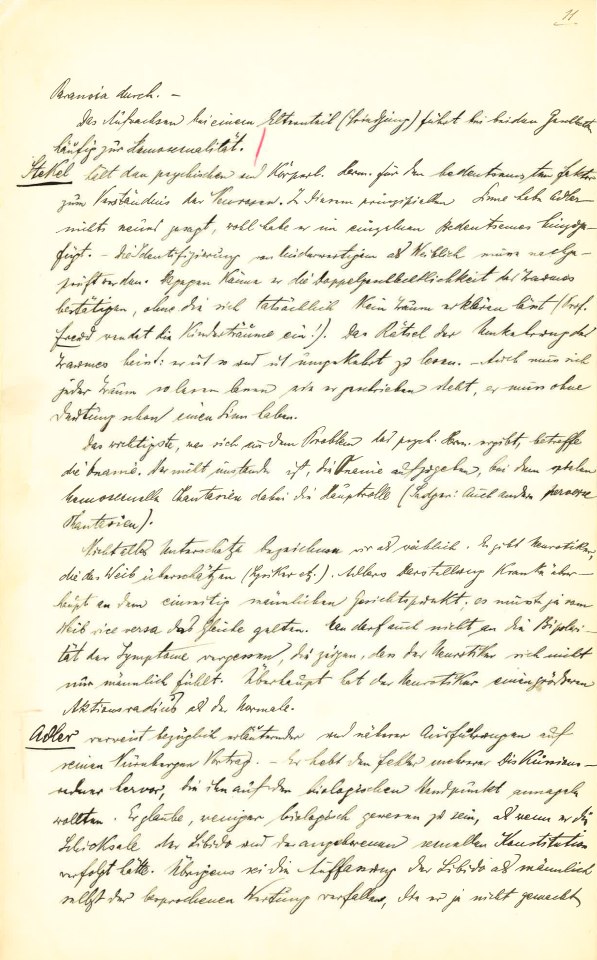 11.
Paranoia durch. —
Das Aufwachsen bei einem Elternteil (Friedjung) führt bei beiden Geschlechtern
häufig zur Homosexualität.
Stekel hält den psychischen und körperl. Herm. für den bedeutsamsten Faktor
zum Verständnis der Neurosen. In diesem prinzipiellen Sinne habe Adler
nichts neues gesagt, wohl habe er im einzelnen Bedeutsames hinzuge-
fügt. — Die Identifizierung von minderwertigem als Weiblich müsse nachge-
prüft werden. Dagegen könne er die Doppelgeschlechtlichkeit des Traumes
bestätigen, ohne die sich tatsächlich kein Traum erklären lässt (Prof.
Freud wendet die Kinderträume ein!). Das Rätsel der Umkehrung des
Traumes heisst: er ist so und ist umgekehrt zu lesen. — Auch muss sich
jeder Traum so lesen lassen wie er geschrieben steht, er muss ohne
Deutung schon einen Sinn haben.
Das wichtigste, was sich aus dem Problem des psych. Herm. ergibt, betreffe
die Onanie. Wer nicht imstande ist, die Onanie aufzugeben, bei dem spielen
homosexuelle Phantasien dabei die Hauptrolle (Sadger: Auch andere perverse
Phantasien).
Nicht alles Unterschätzte bezeichnen wir als weiblich. Es gibt Neurotiker,
die das Weib überschätzen (Lyriker etz.). Adlers Darstellung kranke über-
haupt an dem einseitig männlichen Gesichtspunkt; es müsste ja vom
Weib vice versa das Gleiche gelten. Man darf auch nicht an die Bipolari-
tät der Symptome vergessen, die zeigen, dass der Neurotiker sich nicht
nur männlich fühlt. Überhaupt hat der Neurotiker einen grösseren
Aktionsradius als der Normale.
Adler verweist bezüglich erläuternder und näherer Ausführungen auf
seinen Nürnberger Vortrag. — Er hebt den Fehler mehrerer Diskussions-
redner hervor, die ihn auf den biologischen Standpunkt annageln
wollten. Er glaube, weniger biologisch gewesen zu sein, als wenn er die
Schicksale der Libido und der angeborenen sexuellen Konstitution
verfolgt hätte. Übrigens sei die Auffassung der Libido als männlich
selbst der besprochenen Wertung verfallen, die er ja nicht gemacht